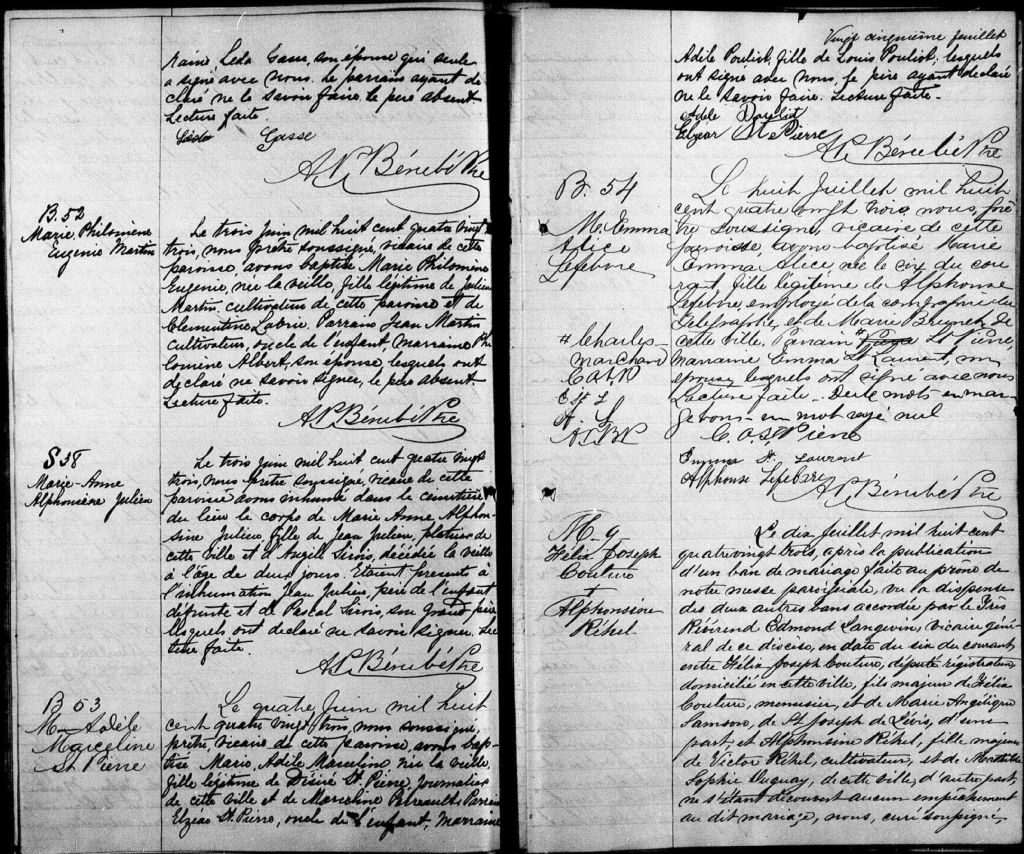 raine Leda Gasse, son épouse qui seule
a signé avec nous. Le parrain ayant dé
claré ne le savoir faire. le père absent
Lecture faite.
Léda Gasse
A P. Bérubé Ptre
B. 52
Marie, Philomène
Eugenie Martin
Le trois juin mil huit cent quatre vingt
trois, nous prêtre soussigné, vicaire de cette
paroisse, avons baptisé Marie Philomène
Eugenie, née la veille, fille légitime de Julien
Martin cultivateur de cette paroisse et de
Clementine Labrie. Parrain Jean Martin
cultivateur, oncle de l'enfant, marraine Phi
lomine Albert, son épouse, lesquels ont
declaré ne savoir signer, le père absent.
Lecture faite.
A P. Bérubé Ptre
S 38
Marie-Anne
Alphonsine Julien
Le trois juin mil huit cent quatre vingt
trois, nous prêtre soussigné, vicaire de cette
paroisse avons inhumé dans le cimetière
du lieu le corps de Marie Anne Alphon-
sine Julien, fille de Jean Julien, platrier de
cette ville et d'Angèle Sirois, décédée la veille
à l'âge de deux jours. Etaient presents à
l'inhumation Jean Julien, père de l'enfant
défunte et de Pascal Sirois, son grand père
lesquels ont declaré ne savoir signer. Lec
ture faite.
A P. Bérubé Ptre
B 53
M-Adèle
Marceline
St Pierre
Le quatre Juin mil huit
cent quatre vingt trois, nous soussigné,
prêtre, vicaire de cette paroisse, avons bap
tisé Marie, Adele Marceline née la veille,
fille légitime de Désiré St Pierre, journalier
de cette ville et de Marceline Perreault. Parrain
Elzéar St. Pierre, oncle de l'enfant, marraine
Vingt cinquième feuillet
Adèle Pouliot, fille de Louis Pouliot, lesquels
ont signé avec nous, le père ayant declaré
ne le savoir faire. Lecture faite.
Adèle Pouliot
Elzear St Pierre
A P. Bérubé Ptre
B. 54
M. Emma
Alice
Lefebvre
Le huit Juillet mil huit
cent quatre vingt trois, nous, prê
tre soussigné, vicaire de cette
paroisse, avons baptisé Marie
Emma Alice, née le six du cou
rant, fille légitime de Alphonse
Lefebvre, employé de la compagnie du
Télégraphe, et de Marie Brunet de
cette ville. Parrain # St Pierre,
marraine Emma St Laurent, son
épouse, lesquels ont signé avec nous
Lecture faite. Deux mots en mar-
ge bons- en mot rayé nul
# Charles
marchand
A. L
A. P. B. P
C. A. St Pierre
Emma St. Laurent
Alphonse Lefebvre
A P. Bérubé Ptre
M- 9
Félix Joseph
Couture
+
Alphonsine
Réhel
Le dix Juillet mil huit cent
quatre vingt trois, après la publication
d'un ban de mariage faite au prone de
notre messe paroissiale, vu la dispense
des deux autres bans accordée par le Très
Révérend Edmond Langevin, vicaire géné
ral de ce diocèse, en date du six du courant
entre Félix Joseph Couture, député régistrateur
domicilié en cette ville, fils majeur de Félix
Couture, menuisier, et de Marie Angélique
Samson, de St. Joseph de Lévis, d'une
part, et Alphonsine Réhel, fille majeure
de Victor Réhel, cultivateur, et de Mathilde
Sophie Duguay, de cette ville, d'autre part,
ne s'étant découvert aucun empêchement
au dit mariage, nous, curé soussigné,